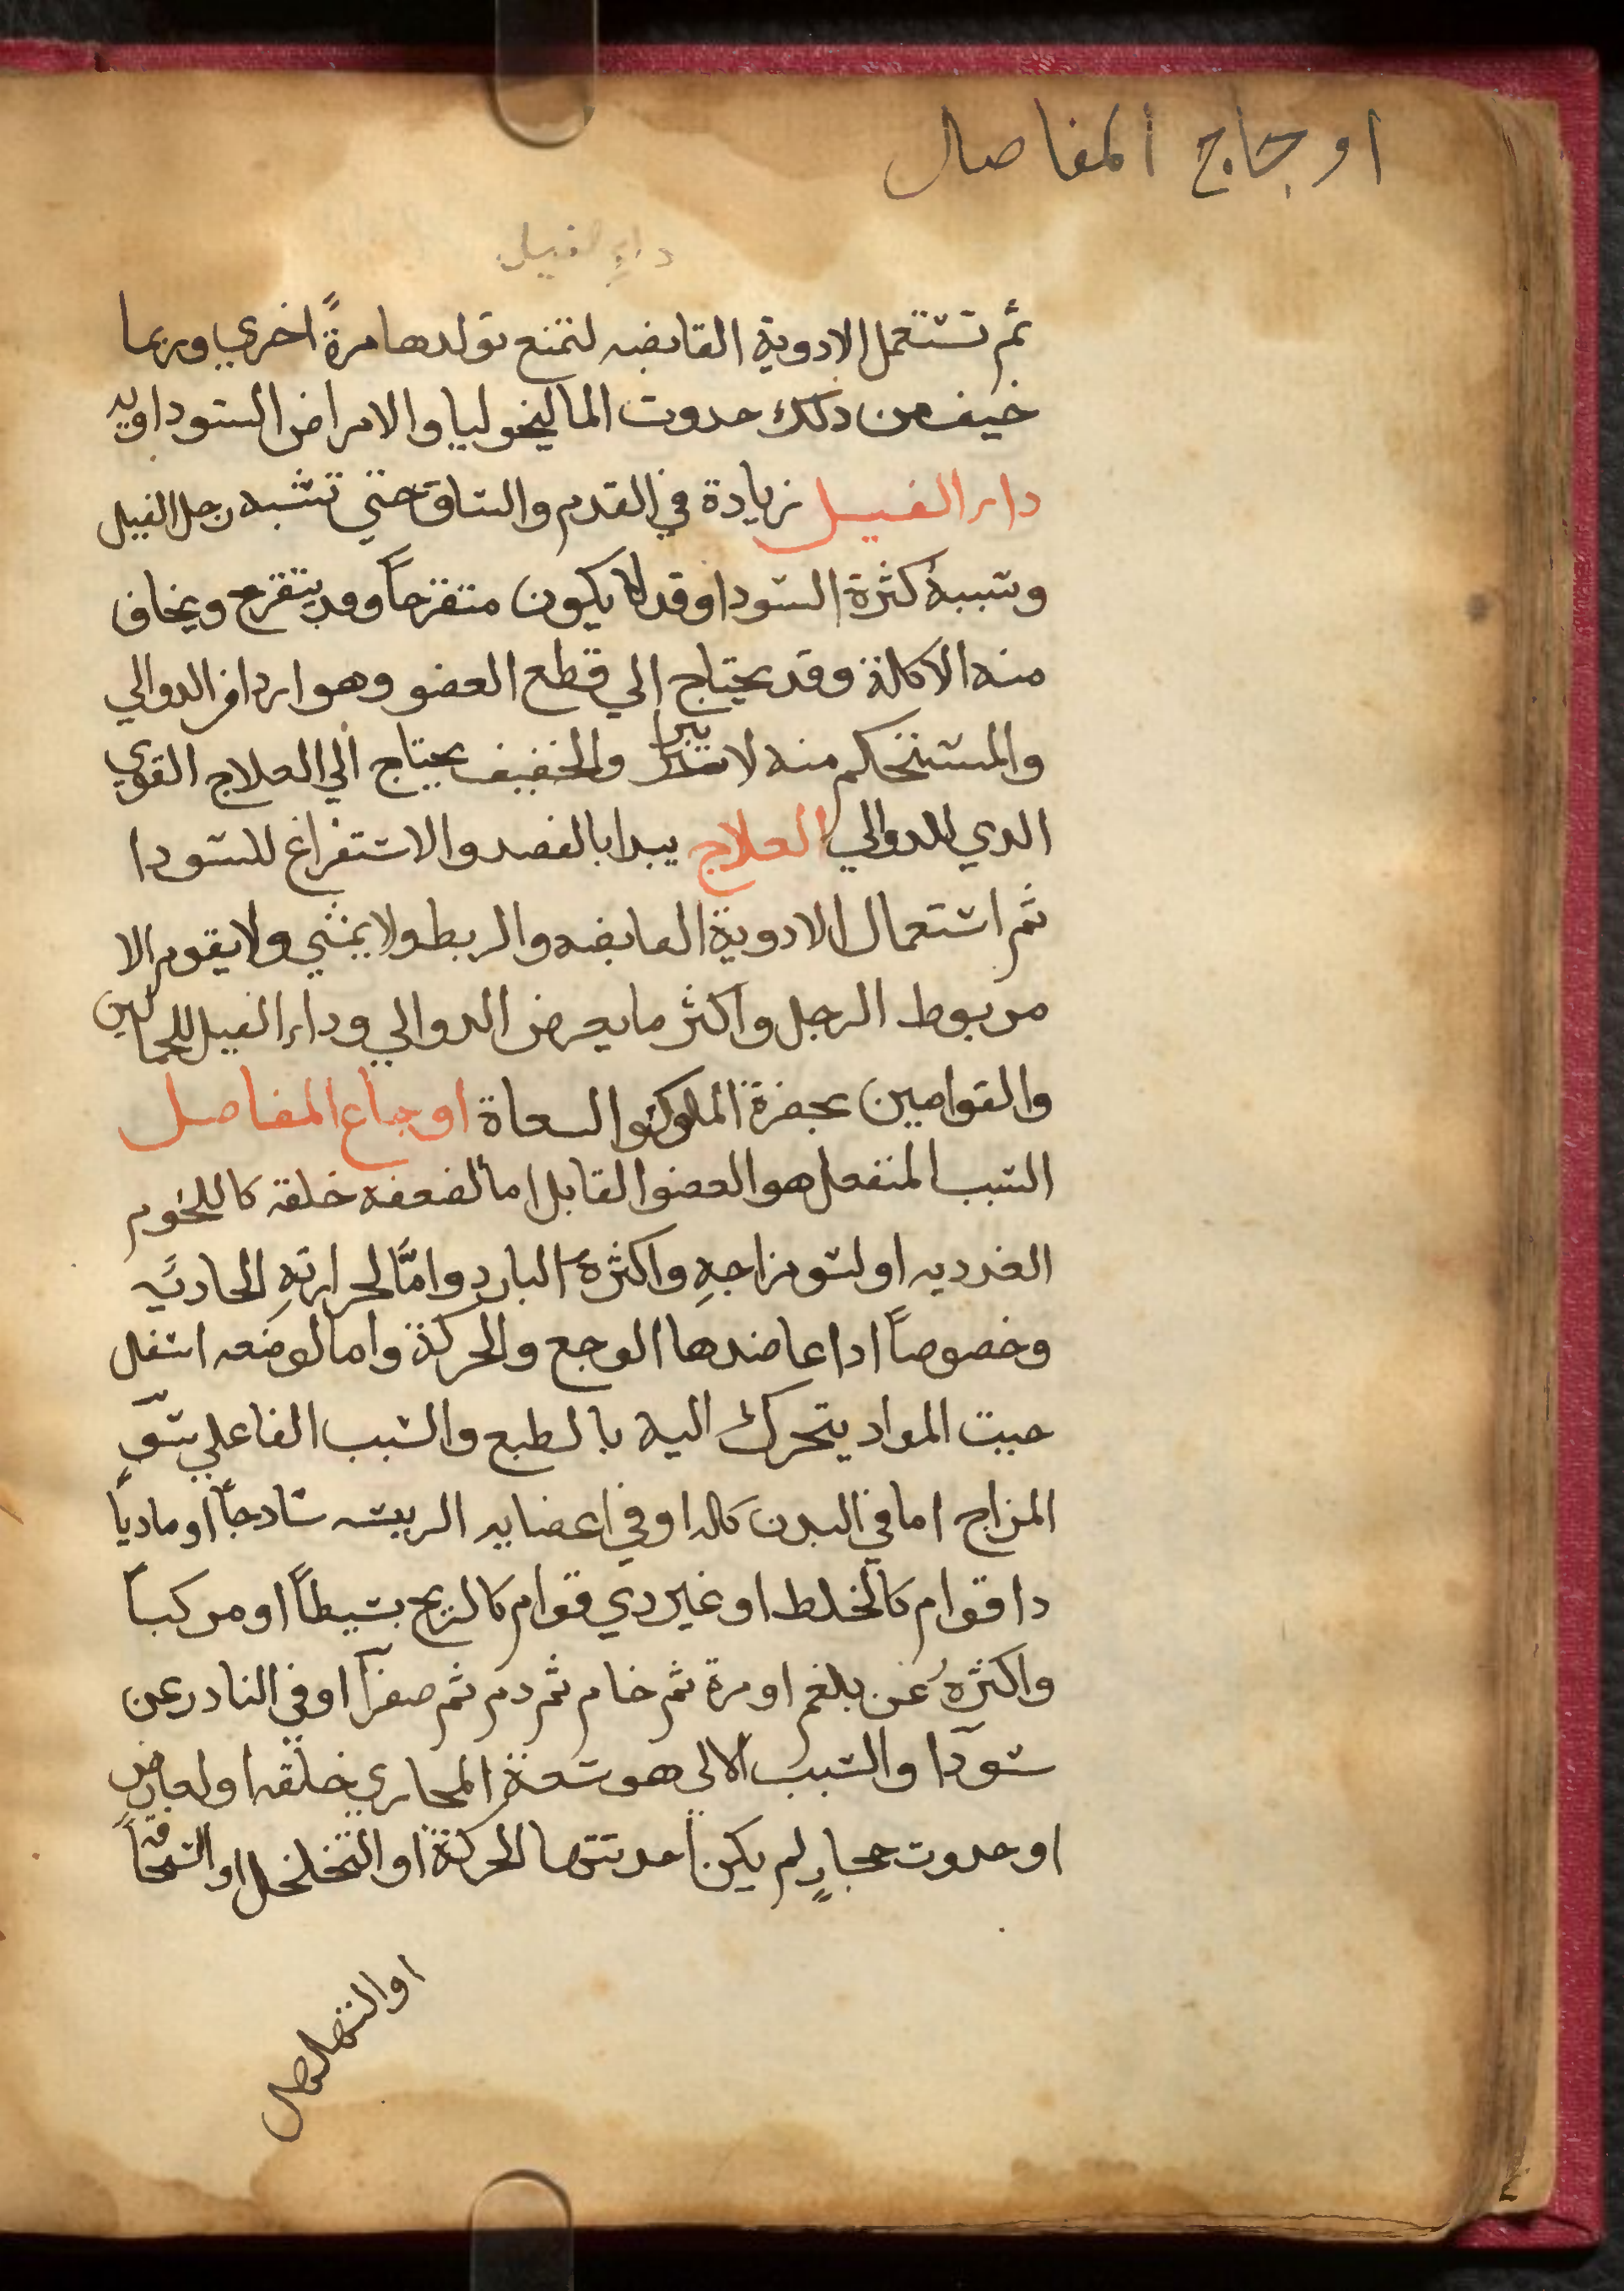 اوجاج المفاصل
داء الفيل
ثم تستعمل الادوية القابضه لتمنع تولدها مرةً اخري وربما
خيف من ذلك حدوت الماليخوليا والامراض السوداويه
داء الفيل زيادة في القدم والساق حتي تشبه رجل الفيل
وسببهُ كثرة السودا وقد لا يكون متقرحاً وقد يتقرح ويخاف
منه الاكلة وقد يحتاج الي قطع العضو وهو اردا من الدوالي
والمستحكم منه لا يبرا والخفيف يحتاج الي العلاج القوي
الدي للدوالي العلاج يبدا بالفصد والاستفراغ للسودا
ثم استعمال الادوية القابضه والربط ولا يمشي ولا يقوم الا
مربوط الرجل واكثر ما يعرض الدوالي وداء الفيل للحمالين
والقوامين بحضرة الملوك والسعاة اوجاع المفاصل
السبب المنفعل هو العضو القابل اما لضعفه خلقة كاللحوم
الغدديه او لسو مزاجهِ واكثرهُ البارد وامَّا لحرارتهِ الجادبَه
وخصوصاً ادا عاضدها الوجع والحركة واما لوضعه اسفل
حيت المواد يتحرك اليه بالطبع والسبب الفاعلي سوّ
المزاج اما في البدن كله او في اعضايه الريسه سادجاً او مادياً
دا قوام كالخلط او غير دي قوام كالريح بسيطاً او مركباً
واكثرهُ عن بلغم او مرة ثم خام ثم دم ثم صفرآ او في النادر عن
سودآ والسبب الالى هو سعة المجاري خلقه او لعارض
او حدوت مجارٍ لم يكن احدتتها الحركة او التخلخل او
او التهلهل